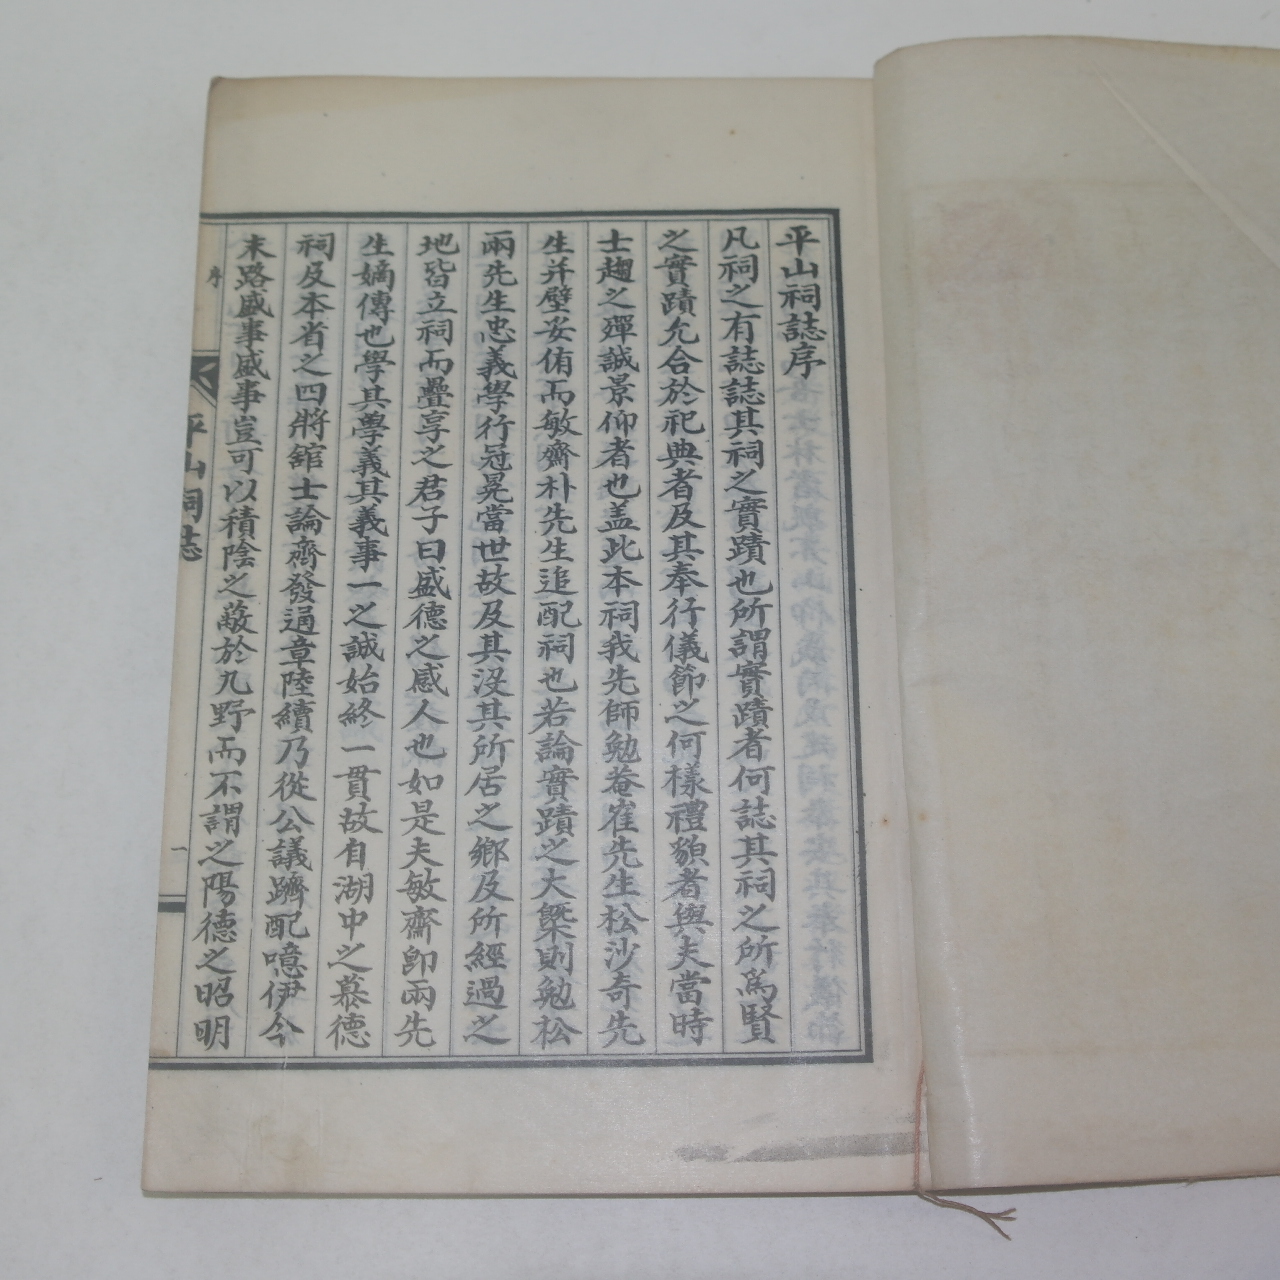 平山祠誌序
凡祠之有誌誌其祠之實蹟也所謂實蹟者何誌其祠之所爲賢
之實蹟允合於祀典者及其奉行儀節之何樣禮貌者與夫當時
士趨之殫誠景仰者也盖此本祠我先師勉菴崔先生松沙奇先
生并壁安侑而敏齋朴先生追配祠也若論實蹟之大槩則勉松
兩先生忠義學行冠冕當世故及其沒其所居之鄉及所經過之
地皆立祠而疊享之君子曰盛德之感人也如是夫敏齋卽兩先
生嫡傳也學其學義其義事一之誠始終一貫故自湖中之慕德
祠及本省之四將舘士論齊發通章陸續乃從公議躋配噫伊今
末路盛事盛事豈可以積陰之蔽於九野而不謂之陽德之昭明
序
平山祠誌
一